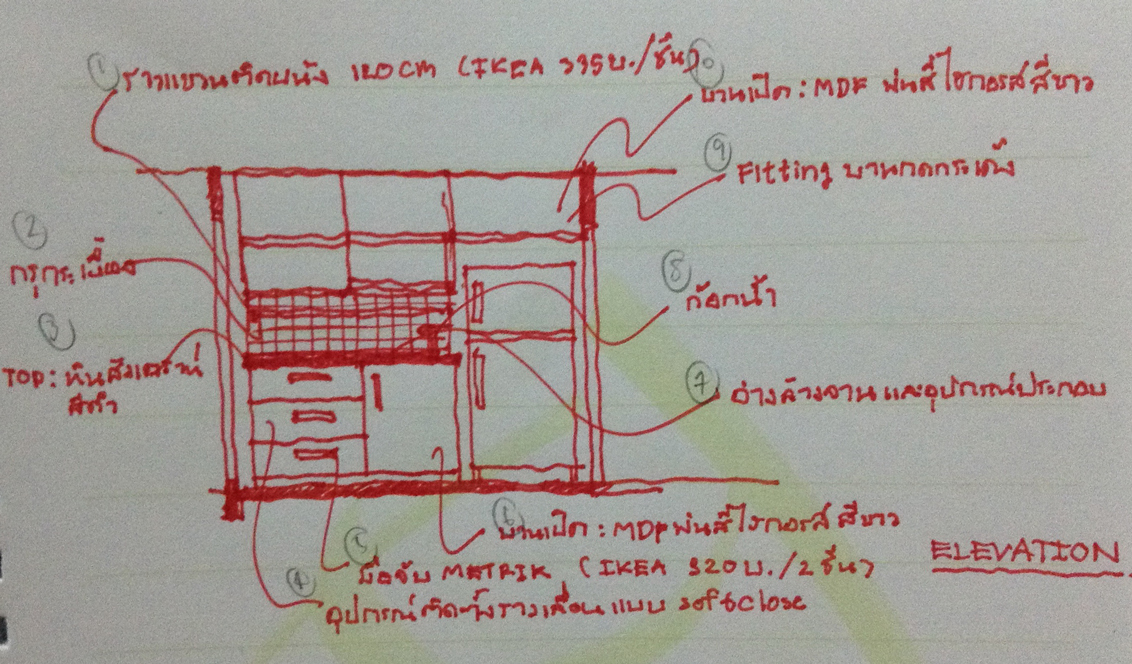 ① ราวแขวนติดผนัง 120cm (IKEA 395บ./ชิ้น)
⑩ บานเปิด : MDF พ่นสีไฮกรอสสีขาว
⑨ Fitting บานกดกระเด้ง
② กรุกระเบื้อง
⑧ ก๊อกน้ำ
③ TOP : หินสังเคราะห์
สีดำ
⑦ อ่างล้างจานและอุปกรณ์ประกอบ
⑥ บานเปิด : MDF พ่นสีไฮกรอสสีขาว
ELEVATION
⑤ มือจับ METRIK (IKEA 320บ./2ชิ้น)
④ อุปกรณ์ติดตั้งรางเลื่อนแบบ softclose